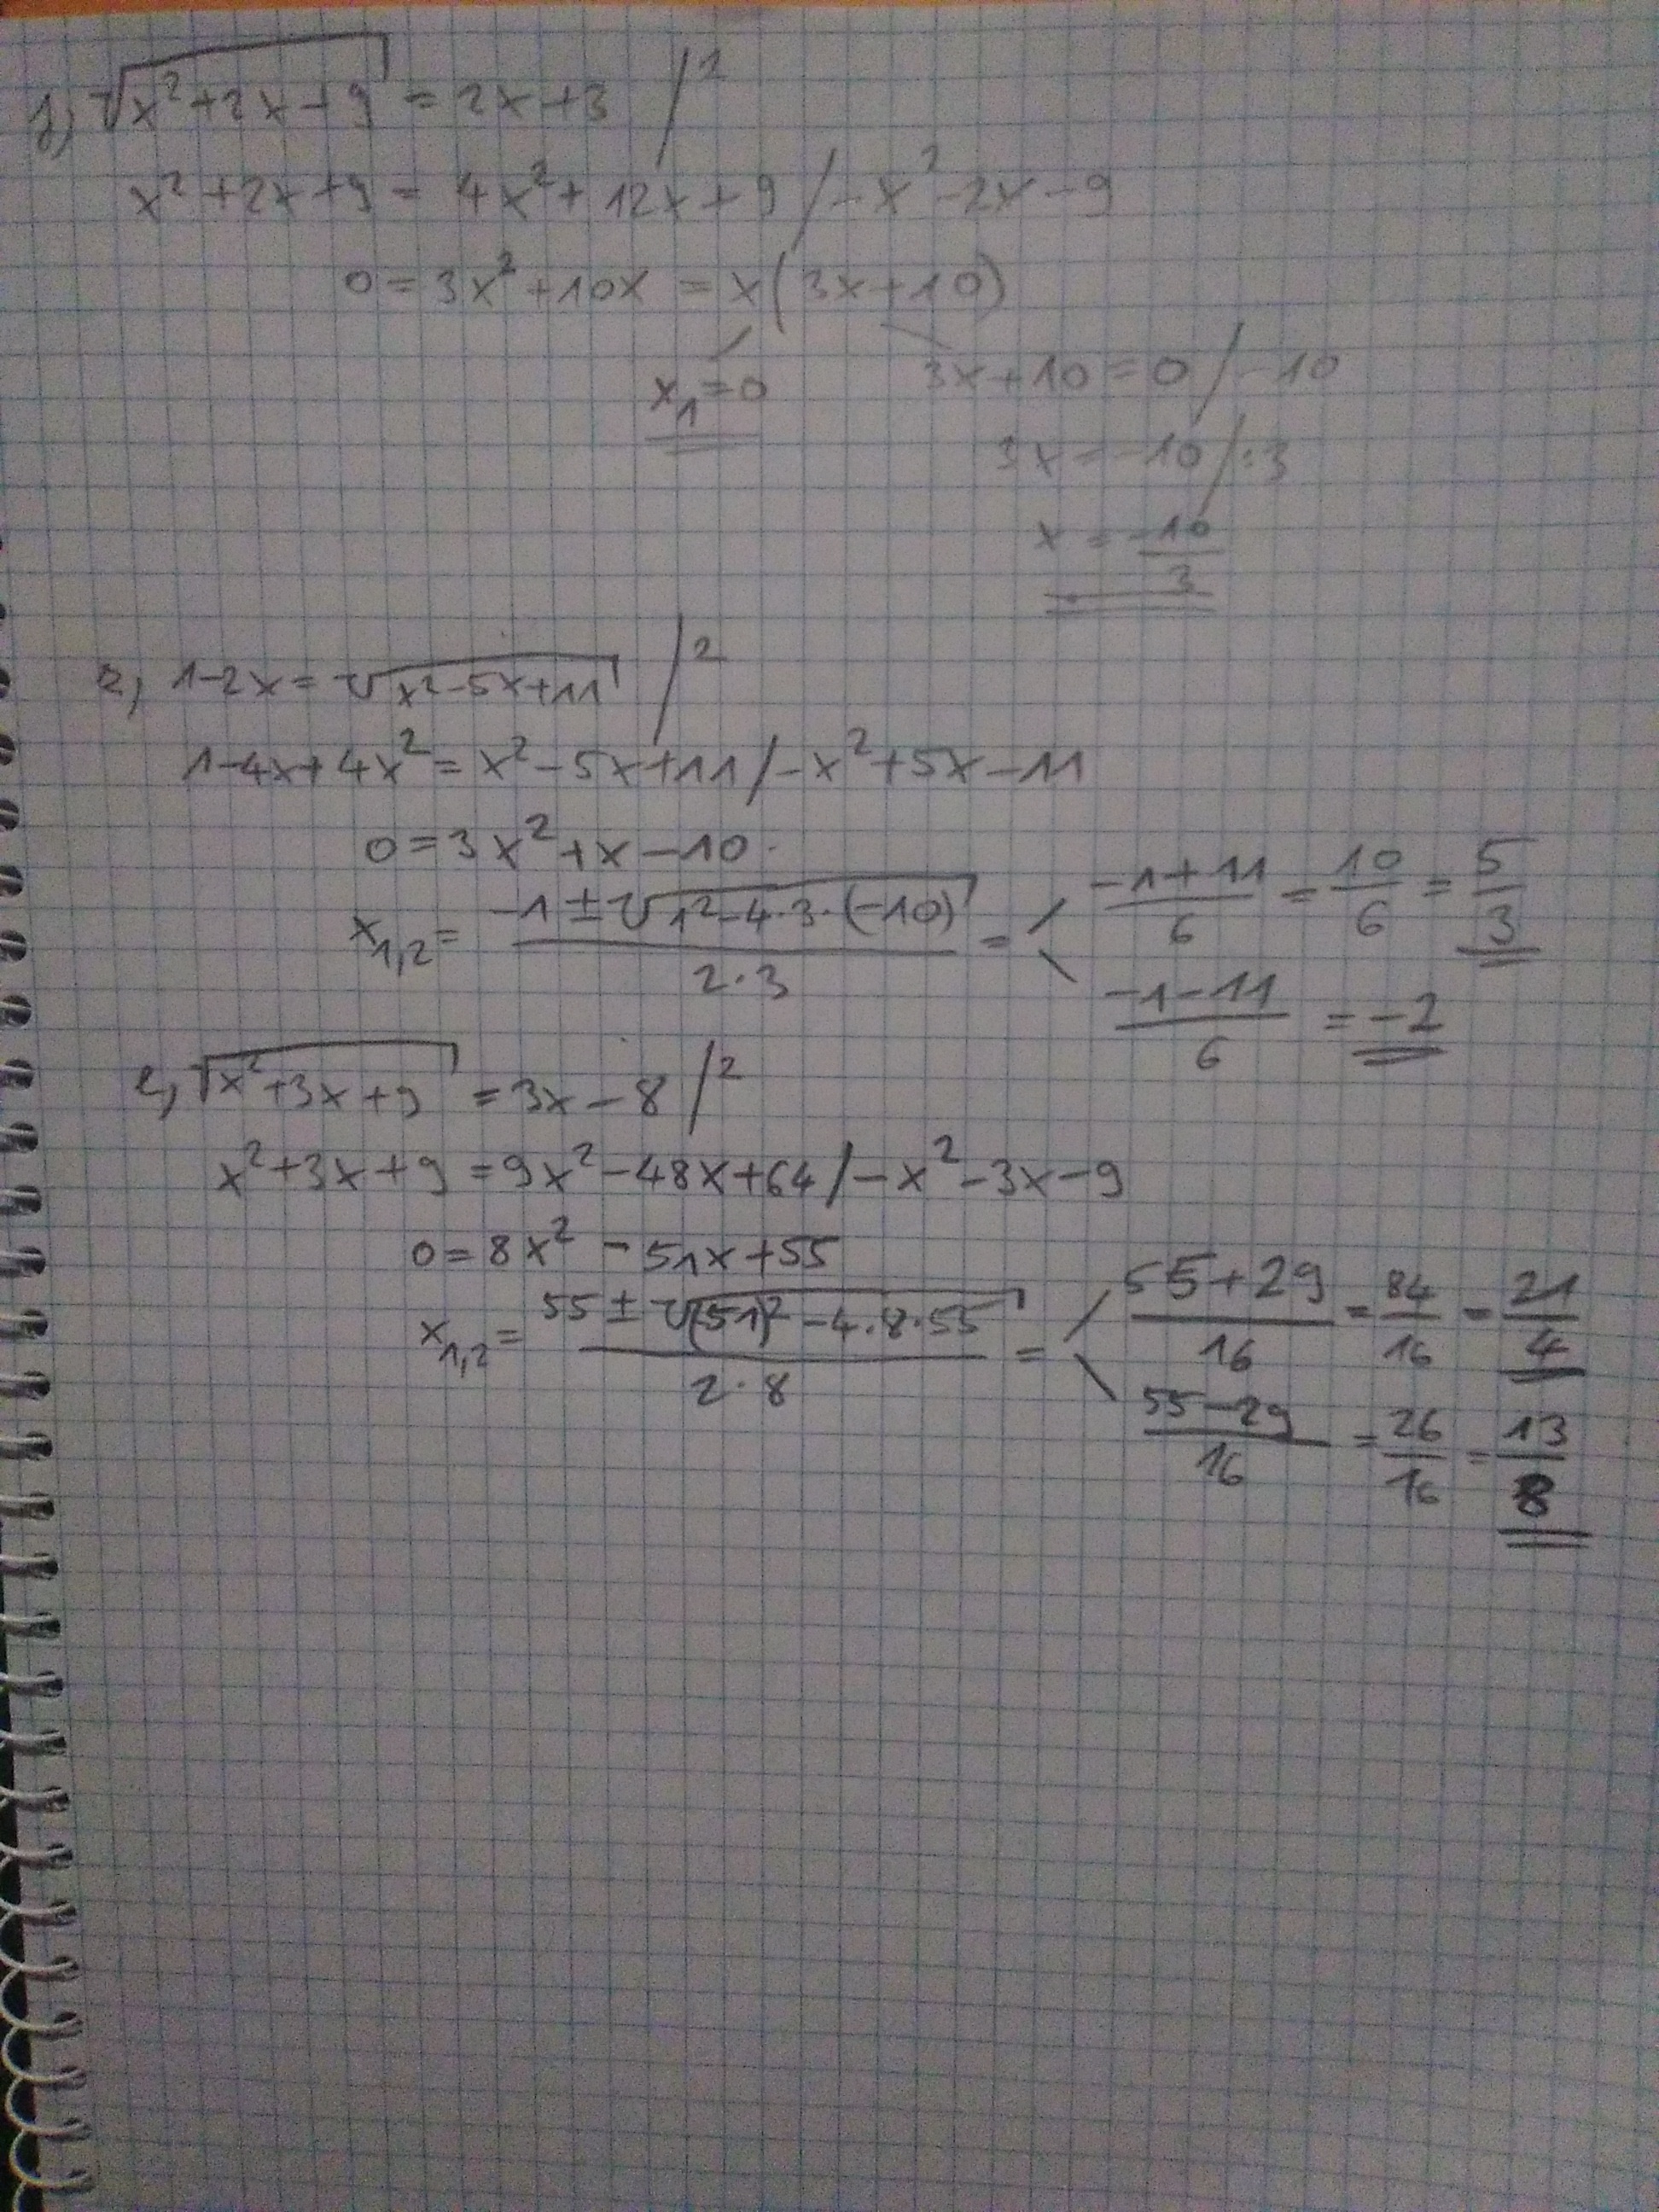 j, √x²+2x+9 = 2x+3 /²
x²+2x+9 = 4x²+12x+9 /-x²-2x-9
0=3x²+10x = x(3x+10)
x₁=0
3x+10=0/-10
3x=-10/:3
x = -10/3
k, 1-2x=√x²-5x+11 /²
1-4x+4x²=x²-5x+11/-x²+5x-11
0=3x²+x-10
x₁,₂= (-1±√1²-4·3·(-10))/(2·3) =
(-1+11)/6 = 10/6 = 5/3
(-1-11)/6 = -2
l, √x²+3x+9 = 3x-8/²
x²+3x+9=9x²-48x+64/-x²-3x-9
0=8x²-51x+55
x₁,₂= (55±√(-51)²-4·8·55)/(2·8) =
(55+29)/16 = 84/16 = 21/4
(55-29)/16 = 26/16 = 13/8